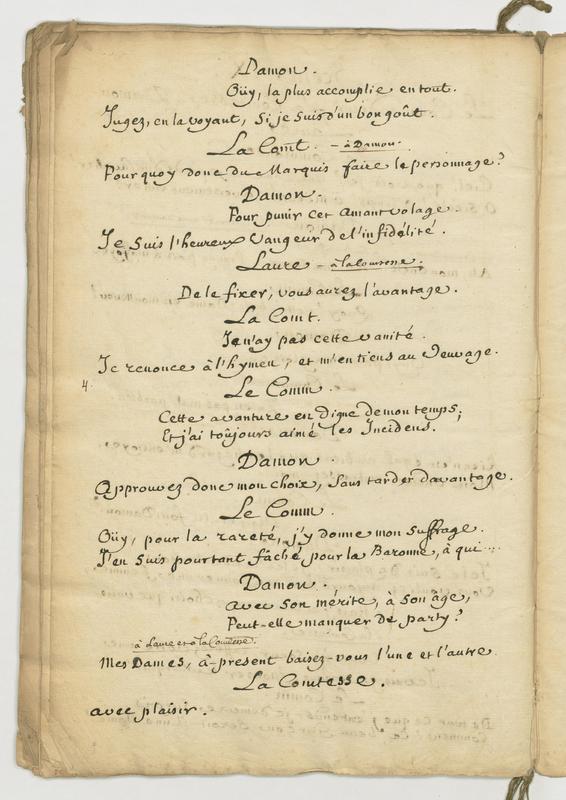 Damon.
Oüy, la plus accomplie en tout.
Jugez, en la voyant, si je suis d'un bon goût.
La Comt. - à Damon.
Pourquoy donc du Marquis faire le personnage?
Damon.
Pour punir cet amant volage.
Je suis l'heureux vangeur de l'infidélité.
Laure - à la Comtesse.
De le fixer, vous aurez l'avantage.
La Comt.
Je n'ay pas cette vanité.
Je renonce à l'hymen, et m'en tiens au veuvage.
4.
Le Comm.
Cette avanture en digne de mon temps;
Et j'ai toûjours aimé les Incidens.
Damon.
Approuvez donc mon choix, sans tarder davantage.
Le Comm.
Oüy, pour la rareté, j'y donne mon suffrage.
J'en suis pourtant fâché pour la Baronne, à qui...
Damon.
avec son mérite, à son âge,
Peut-elle manquer de party?
à Laure et à la Comtesse.
Mes Dames, à-présent baisez-vous l'une et l'autre
La Comtesse.
avec plaisir.